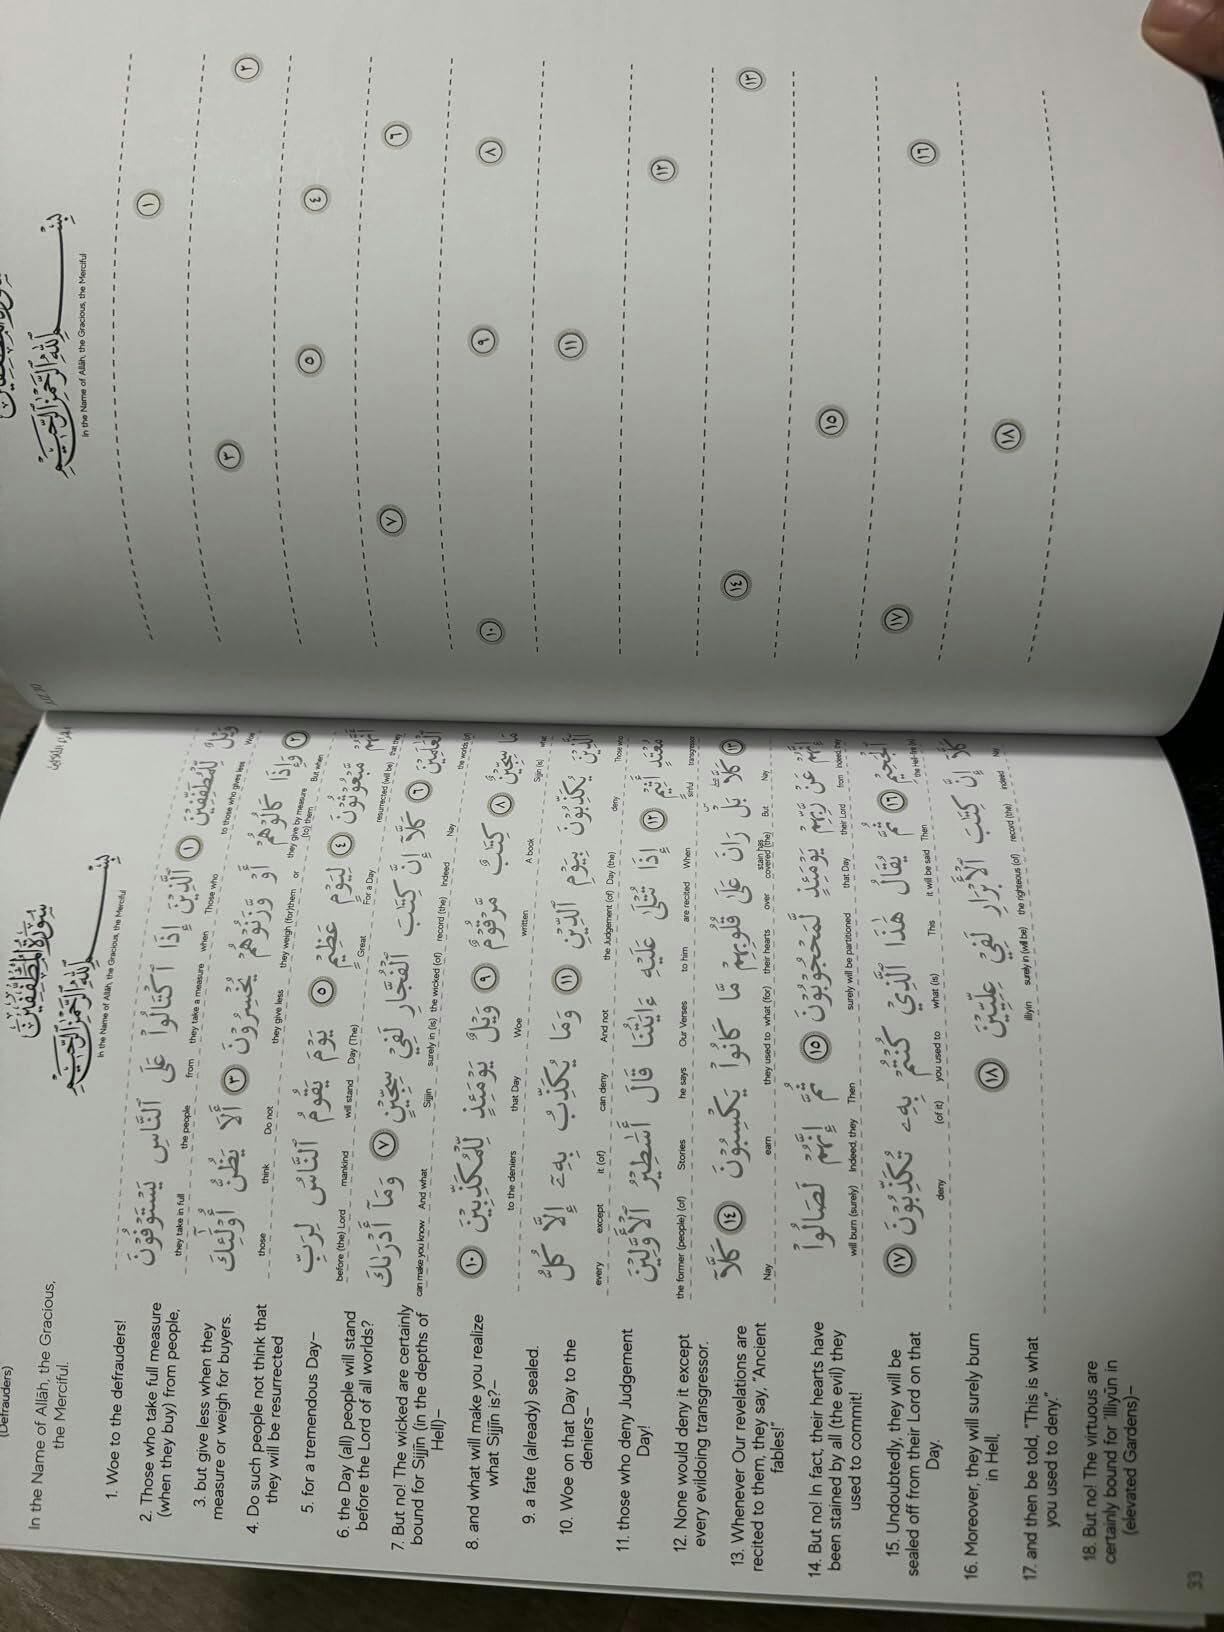 (Defrauders)
In the Name of Allāh, the Gracious,
the Merciful.
1. Woe to the defrauders!
2. Those who take full measure
(when they buy) from people,
3. but give less when they
measure or weigh for buyers.
4. Do such people not think that
they will be resurrected
5. for a tremendous Day–
6. the Day (all) people will stand
before the Lord of all worlds?
7. But no! The wicked are certainly
bound for Sijjīn (in the depths of
Hell)–
8. and what will make you realize
what Sijjīn is?–
9. a fate (already) sealed.
10. Woe on that Day to the
deniers–
11. those who deny Judgement
Day!
12. None would deny it except
every evildoing transgressor.
13. Whenever Our revelations are
recited to them, they say, "Ancient
fables!"
14. But no! In fact, their hearts have
been stained by all (the evil) they
used to commit!
15. Undoubtedly, they will be
sealed off from their Lord on that
Day.
16. Moreover, they will surely burn
in Hell,
17. and then be told, "This is what
you used to deny."
18. But no! The virtuous are
certainly bound for 'Illiyūn in
(elevated Gardens)–
33
سُورَةُ المُطَفِّفِين
بِسْمِ ٱللَّهِ ٱلرَّحْمَٰنِ ٱلرَّحِيمِ
In the Name of Allāh, the Gracious, the Merciful
وَيْلٌ لِّلْمُطَفِّفِينَ ١ ٱلَّذِينَ إِذَا ٱكْتَالُوا۟ عَلَى ٱلنَّاسِ يَسْتَوْفُونَ
they take in full the people from they take a measure when Those who to those who gives less Woe
٢ وَإِذَا كَالُوهُمْ أَوْ وَّزَنُوهُمْ يُخْسِرُونَ ٣ أَلَا يَظُنُّ أُو۟لَٰٓئِكَ
those think Do not they give less they weigh (for)them or they give by measure (to) them But when
أَنَّهُم مَّبْعُوثُونَ ٤ لِيَوْمٍ عَظِيمٍ ٥ يَوْمَ يَقُومُ ٱلنَّاسُ لِرَبِّ
before (the) Lord mankind will stand Day (The) Great For a Day resurrected (will be) that they
ٱلْعَٰلَمِينَ ٦ كَلَّآ إِنَّ كِتَٰبَ ٱلْفُجَّارِ لَفِي سِجِّينٍ ٧ وَمَآ أَدْرَىٰكَ
can make you know And what Sijjin surely in (is) the wicked (of) record (the) Indeed Nay the worlds (of)
مَا سِجِّينٌ ٨ كِتَٰبٌ مَّرْقُومٌ ٩ وَيْلٌ يَوْمَئِذٍ لِّلْمُكَذِّبِينَ ١٠
to the deniers that Day Woe written A book Sijjin (is) what
ٱلَّذِينَ يُكَذِّبُونَ بِيَوْمِ ٱلدِّينِ ١١ وَمَا يُكَذِّبُ بِهِۦٓ إِلَّا كُلُّ
every except it (of) can deny And not the Judgement (of) Day (the) deny Those who
مُعْتَدٍ أَثِيمٍ ١٢ إِذَا تُتْلَىٰ عَلَيْهِ ءَايَٰتُنَا قَالَ أَسَٰطِيرُ ٱلْأَوَّلِينَ
the former (people) (of) Stories he says Our Verses to him are recited When sinful transgressor
١٣ كَلَّا بَلْ رَانَ عَلَىٰ قُلُوبِهِم مَّا كَانُوا۟ يَكْسِبُونَ ١٤ كَلَّآ
Nay earn they used to what (for) their hearts over stain has covered (the) But Nay
إِنَّهُمْ عَن رَّبِّهِمْ يَوْمَئِذٍ لَّمَحْجُوبُونَ ١٥ ثُمَّ إِنَّهُمْ لَصَالُوا۟
will burn (surely) Indeed, they Then surely will be partitioned that Day their Lord from Indeed, they
ٱلْجَحِيمِ ١٦ ثُمَّ يُقَالُ هَٰذَا ٱلَّذِي كُنتُم بِهِۦ تُكَذِّبُونَ ١٧
deny (of it) you used to what (is) This it will be said Then the Hell-Fire (in)
كَلَّآ إِنَّ كِتَٰبَ ٱلْأَبْرَارِ لَفِي عِلِّيِّينَ ١٨
illiyin surely in (will be) the righteous (of) record (the) indeed Nay
بِسْمِ ٱللَّهِ ٱلرَّحْمَٰنِ ٱلرَّحِيمِ
In the Name of Allāh, the Gracious, the Merciful
١
٢ ٣
٤ ٥
٦ ٧
٨ ٩ ١٠
١١
١٢
١٣ ١٤
١٥
١٦ ١٧
١٨